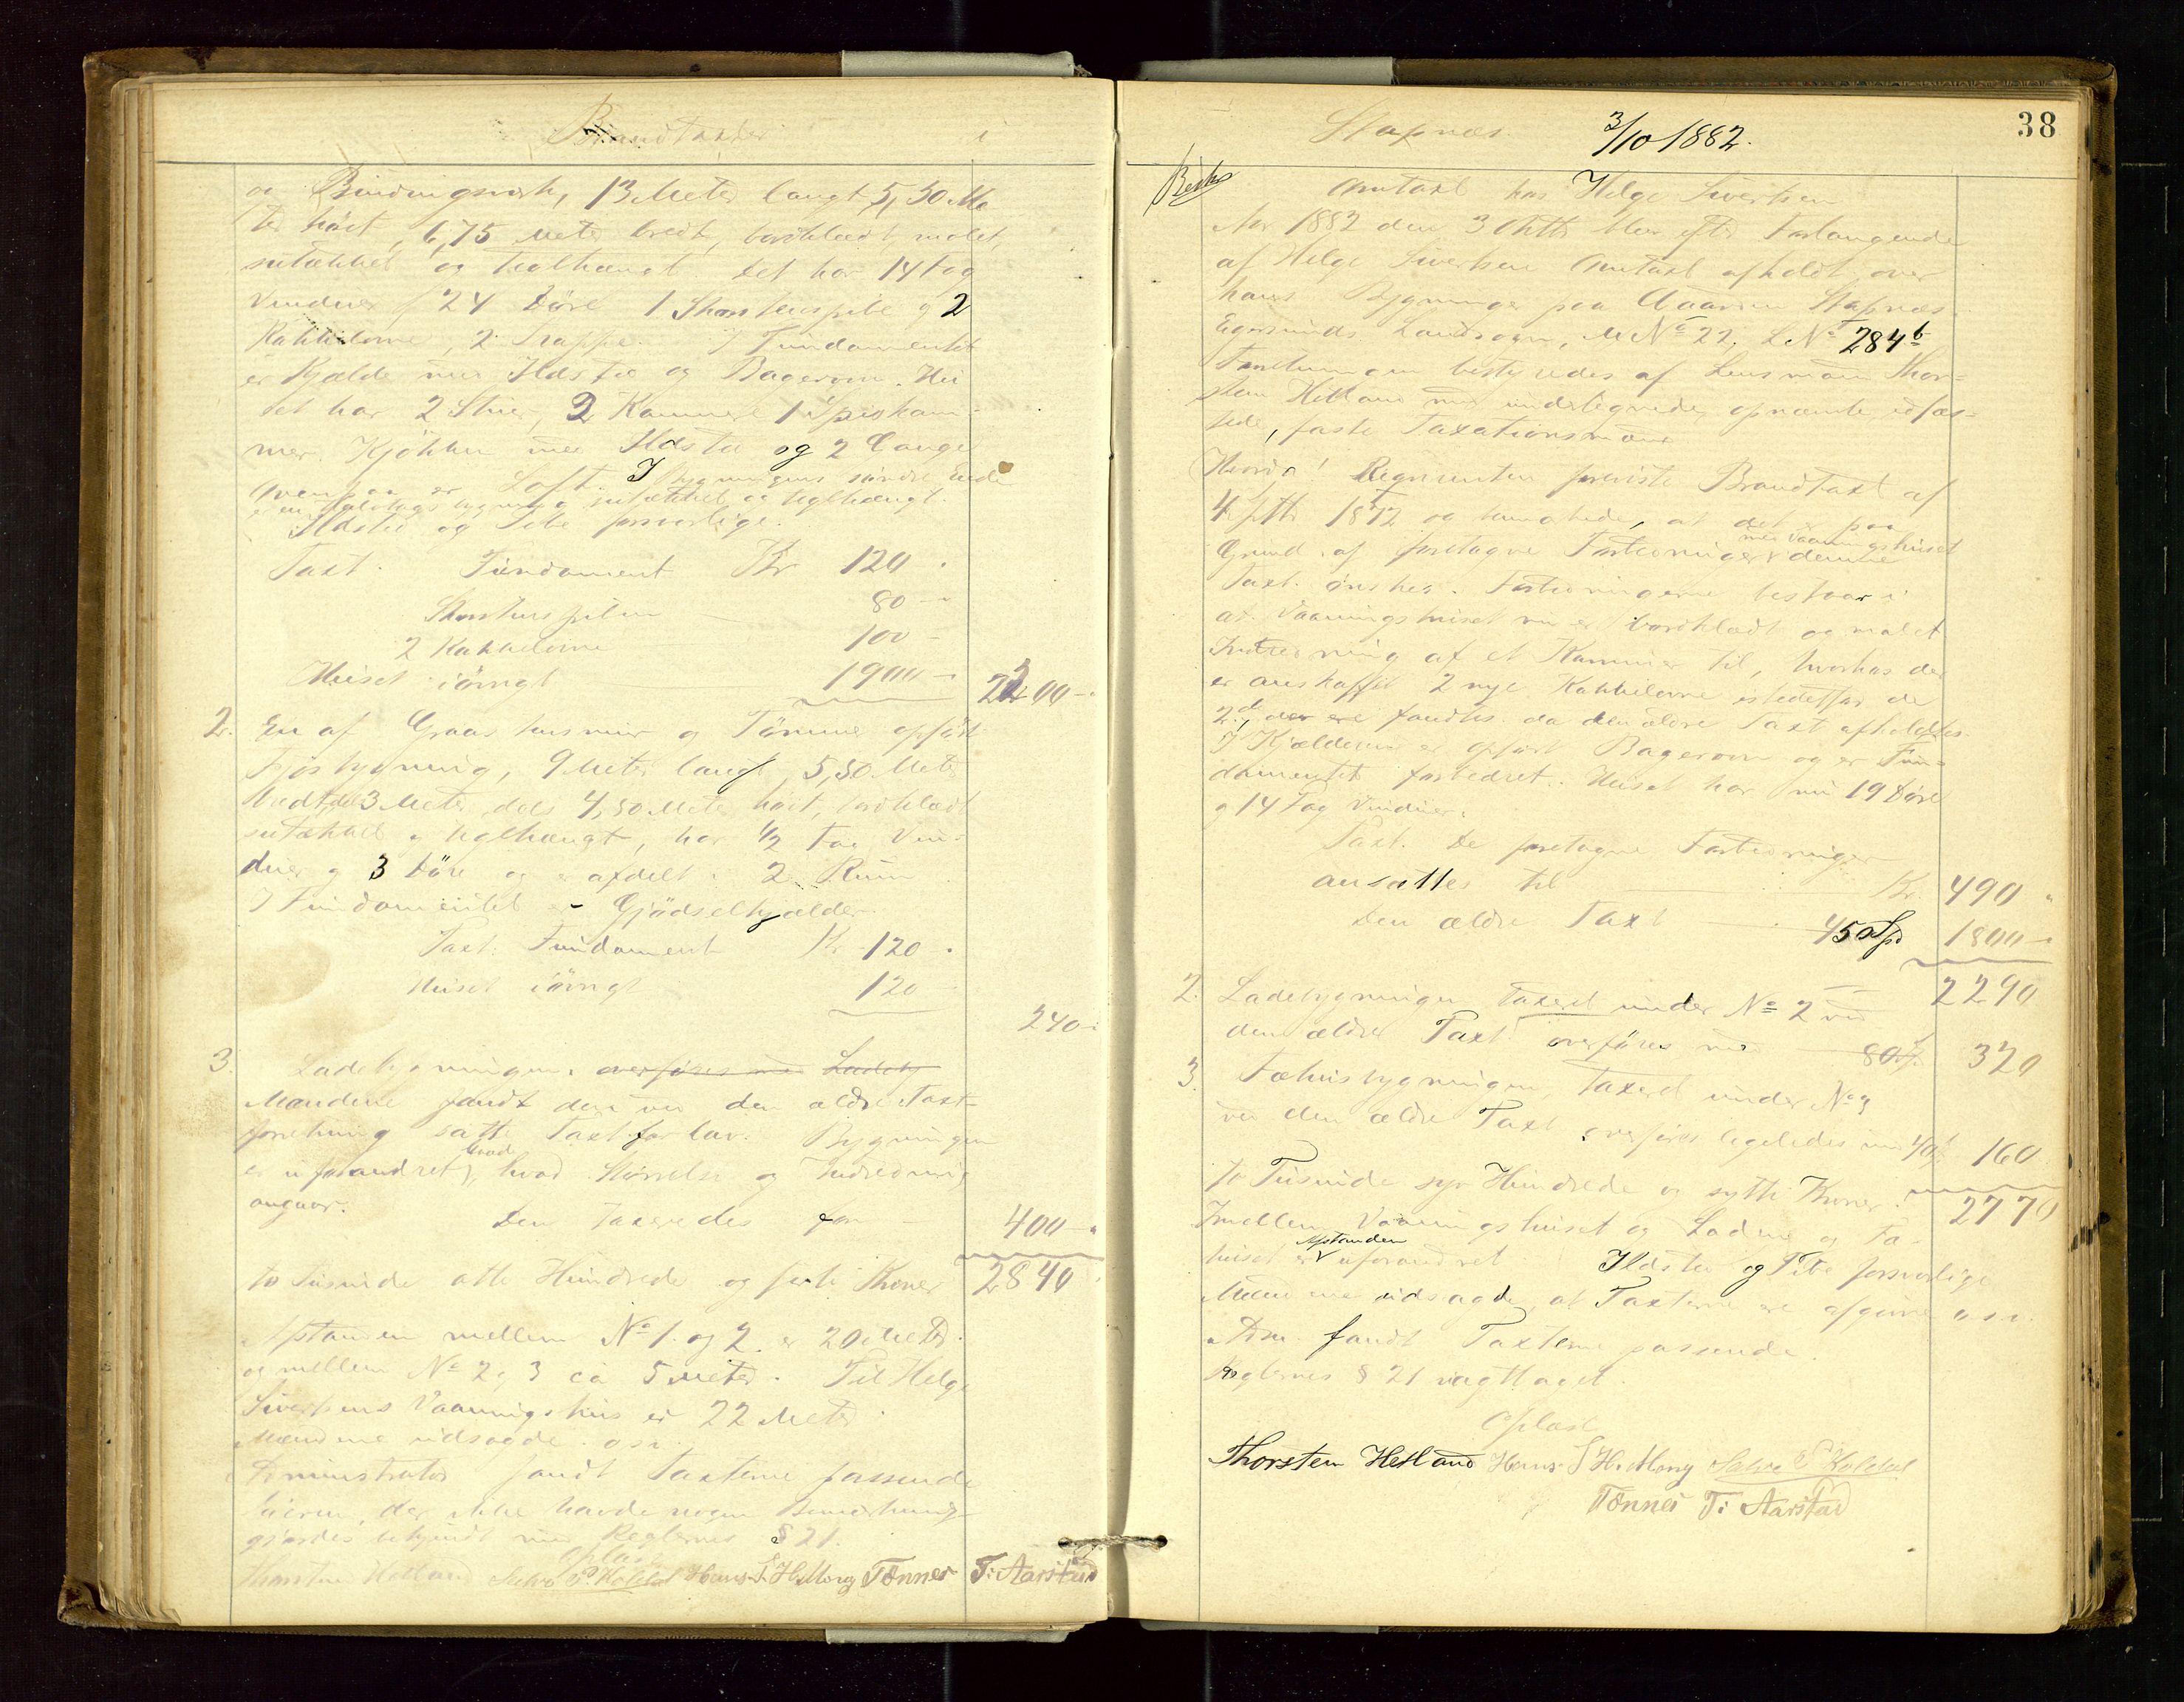 Brandtaxter i
og Bindingsverk, 13 Meter langt, 5,50 Me
ter höit, 6,75 Meter bredt, bordklædt, malet,
sutækket og teglhængt. Det har 14 Fag
Vinduer, 24 Döre 1 Skorstenspibe og 2
Kakkelovne, 2 Trapper. I Fundamentet
er Kjælder med Ildsted og Bagerovn. Hu
set har 2 Stuer, 2 Kammere 1 Spiskam-
mer, Kjökken med Ildsted og 2 Gange
Ovenpaa er Loft. I Bygningens söndre Ende
er en Halvtagsbygning sutækket og teglhængt.
Ildsted og Pibe forsvarlige.
Taxt. Fundament Kr 120 "
Skorstenspiben 80 "
2 Kakkelovne 100 "
Huset iövrigt 1900 " 2200 "
2. En af Graastensmur og Tömmer opfört
Fjösbygning, 9 Meter langt, 5,50 Meter
bredt, dels 3 Meter, dels 4,50 Meter höit, bordklædt
sutækket og teglhængt, har 1/2 Fag Vin-
duer og 3 Döre og er afdelt i 2 Rum
I Fundamentet er Gjödselkjælder.
Taxt. Fundament Kr 120 "
Huset iövrigt 120
240 "
3. Ladebygningen. overföres med Ladeby
Mændene fandt den ved den ældre Taxt-
forretning satt Taxt for lav. Bygningen
er uforandret, hvad Störrelse og Indredning
angaar.
Den taxeredes for 400 "
to Tusinde otte Hundrede og firti Kroner 2840
Afstanden mellem No 1 og 2 er 20 Meter
og mellem No 2 og 3 ca 5 Meter. Til Helge
Sivertsens Vaaningshus er 22 Meter
Mændene udsagde o s v.
Administrator fandt Taxterne passende
Eieren, der ikke havde nogen Bemærkning
gjordes bekjendt med Reglernes § 21.
Oplæst
Thorsten Hetland Salve P. Koldal Hans S H. Mong Tönnes T: Aarstad
Stapnæs. 3/10 1882. 38
Omtaxt hos Helge Sivertsen
Aar 1882 den 3 Oktbr blev efter Forlangende
af Helge Sivertsen Omtaxt afholdt over
hans Bygninger paa Gaarden Stapnæs
Egersunds Landsogn, M No 22, L No 284 b
Forretningen bestyredes af Lensmand Thor-
sten Hetland med undertegnede, opnævnte edfæs-
tede, faste Taxationsmænd
Hvorda! Regvirenten foreviste Brandtaxt af
4 Septbr 1872 og bemærkede, at det paa
Grund af foretagne Forbedringer med Vaaningshuset denne
Taxt ønskes. Forbedringerne bestaar i
at Vaaningshuset nu er bordklædt og malet
Indredning af et Kammer til, hvorhos der
er anskaffet 2 nye Kakkelovne istedetfor de
2de, der ere fandtes da den ældre Taxt afholdtes.
I Kjælderen er opfört Bagerovn og er Fun-
damentet forbedret. Huset har nu 19 Döre
og 14 Fag Vinduer.
Taxt. De foretagne Forbedringer
ansattes til Kr. 490 "
Den ældre Taxt 450 Spd 1800 "
2290
2. Ladebygningen taxeret under No 2 ved
den ældre Taxt overföres med 80 Sp. 320
3. Fæhusbygningen, taxeret under No 3
ved den ældre Taxt overföres ligeledes med 40 Sp 160
to Tusinde syv Hundrede og sytti Kroner. 2770
Imellem Vaaningshuset og Laden og Fæ-
huset er Afstanden uforandret Ildsted og Pibe forsvarlige
Mændene udsagde, at Taxterne ere afgivne o s v.
Adm. fandt Taxterne passende.
Reglernes § 21 iagttaget.
Oplæst
Thorsten Hetland Hans S H. Mong Salve P Koldal
Tönnes T: Aarstad